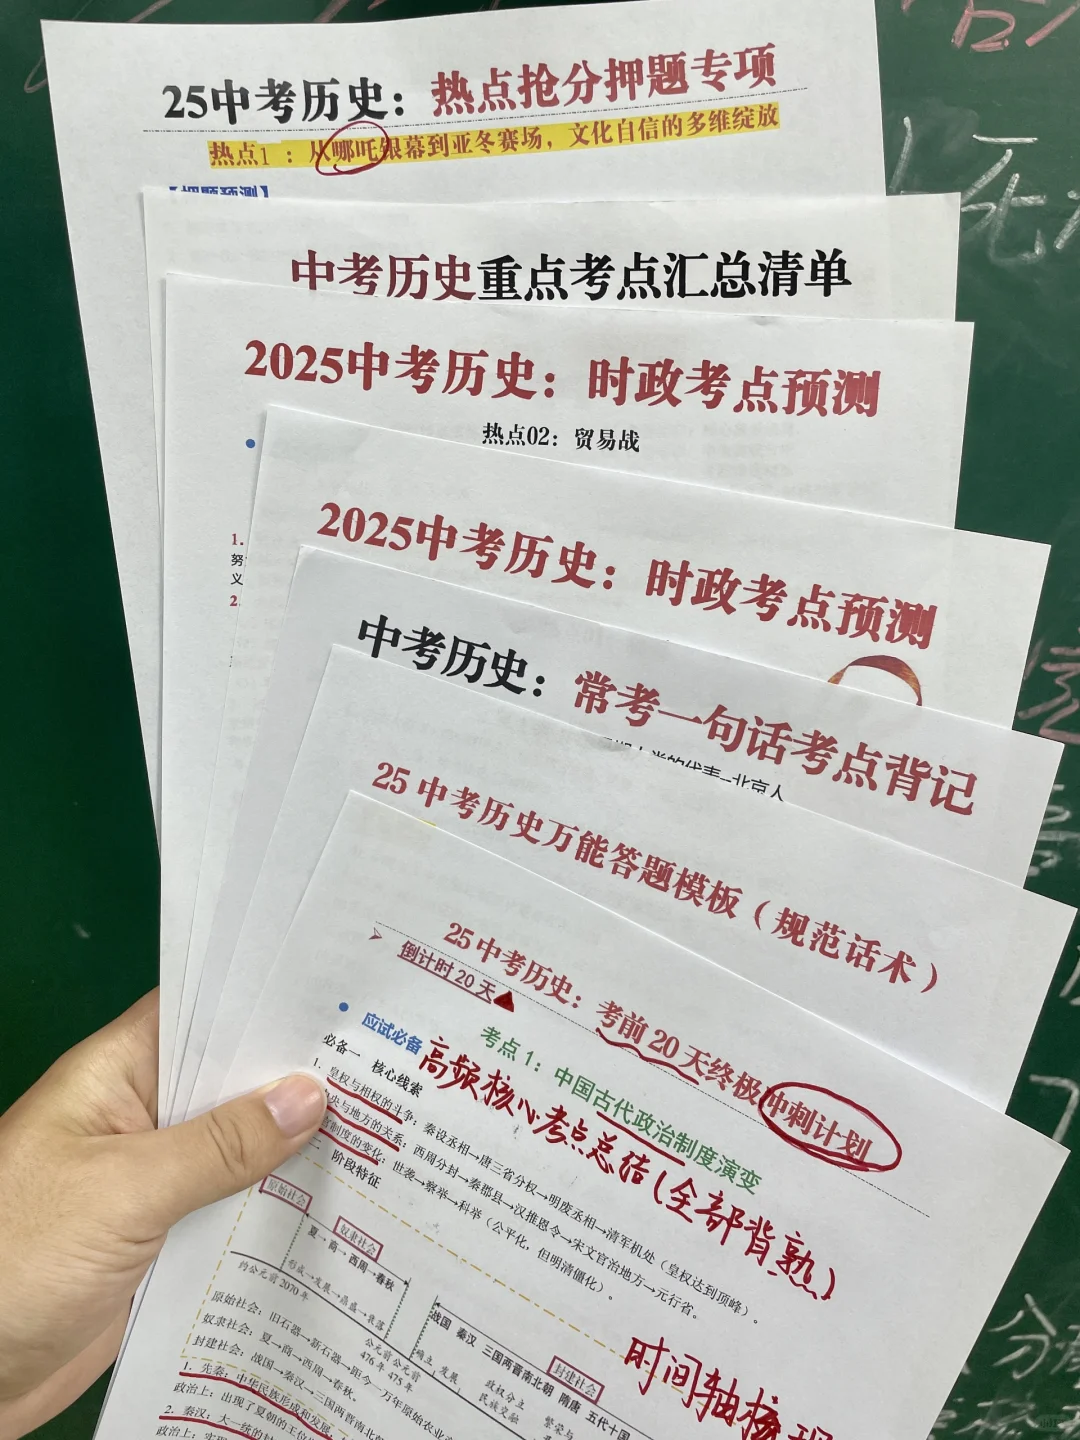 25中考历史：热点抢分押题专项
热点1 ：从哪吒银幕到亚冬赛场，文化自信的多维绽放
【押题预测】
中考历史重点考点汇总清单
2025中考历史：时政考点预测
热点02：贸易战
1.
努
义
2.
2025中考历史：时政考点预测
中考历史：常考一句话考点背记
25 中考历史万能答题模板（规范话术）
25 中考历史：考前 20 天终极冲刺计划
倒计时 20 天
考点 1：中国古代政治制度演变
应试必备
高频核心考点总结(全部背熟)
必备一 核心线索
1. 皇权与相权的斗争：秦设丞相→唐三省分权→明废丞相→清军机处（皇权达到顶峰）
央与地方的关系：西周分封→秦郡县→汉推恩令→宋文官治地方→元行省。
制度的变化：世袭→察举→科举（公平化，但明清僵化）。
二 阶段特征
原始社会
奴隶社会
夏→商→西周→春秋
形成→发展→鼎盛→衰落
约公元前2070年
公元前 公元前
476年 475年
战国 秦汉 三国两晋南北朝 隋唐 五代十国
封建社会
确立 发展
政权分立
民族交融
繁荣与
时间轴梳理
原始社会：旧石器→新石器→距今一万年原始农业
奴隶社会：夏→商→西周→春秋。
封建社会：战国→秦汉→三国两晋南北
1. 先秦：中华民族形成和发展
政治上：出现了夏朝的王位
2. 秦汉：大一统的
政治上：实现